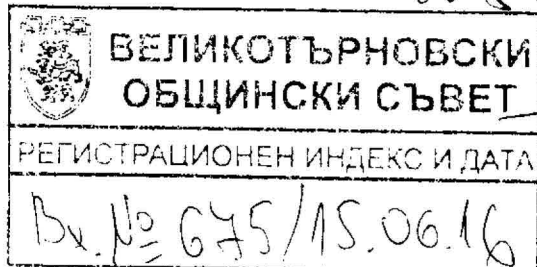 ВЕЛИКОТЪРНОВСКИ
ОБЩИНСКИ СЪВЕТ
РЕГИСТРАЦИОНЕН ИНДЕКС И ДАТА
Вх. № 675/15.06.16